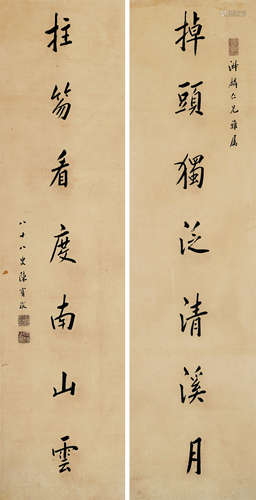 掉頭獨泛清溪月
仁兄雅屬
拄笏看度南山雲
八十八叟陳寶琛